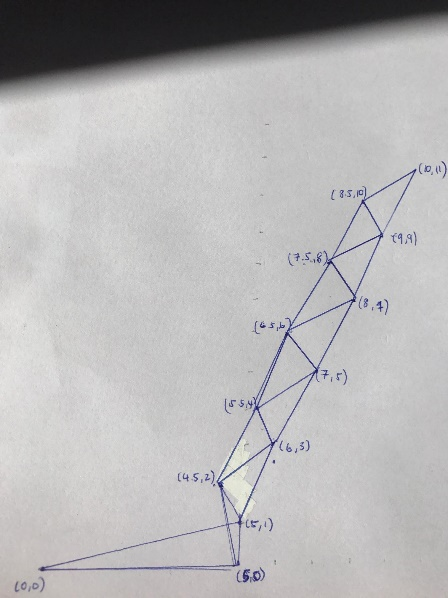 (10,11)
(8.5,10)
(9,9)
(7.5,8)
(8,7)
(6.5,6)
(7,5)
(5.5,4)
(6,3)
(4.5,2)
(5,1)
(5,0)
(0,0)